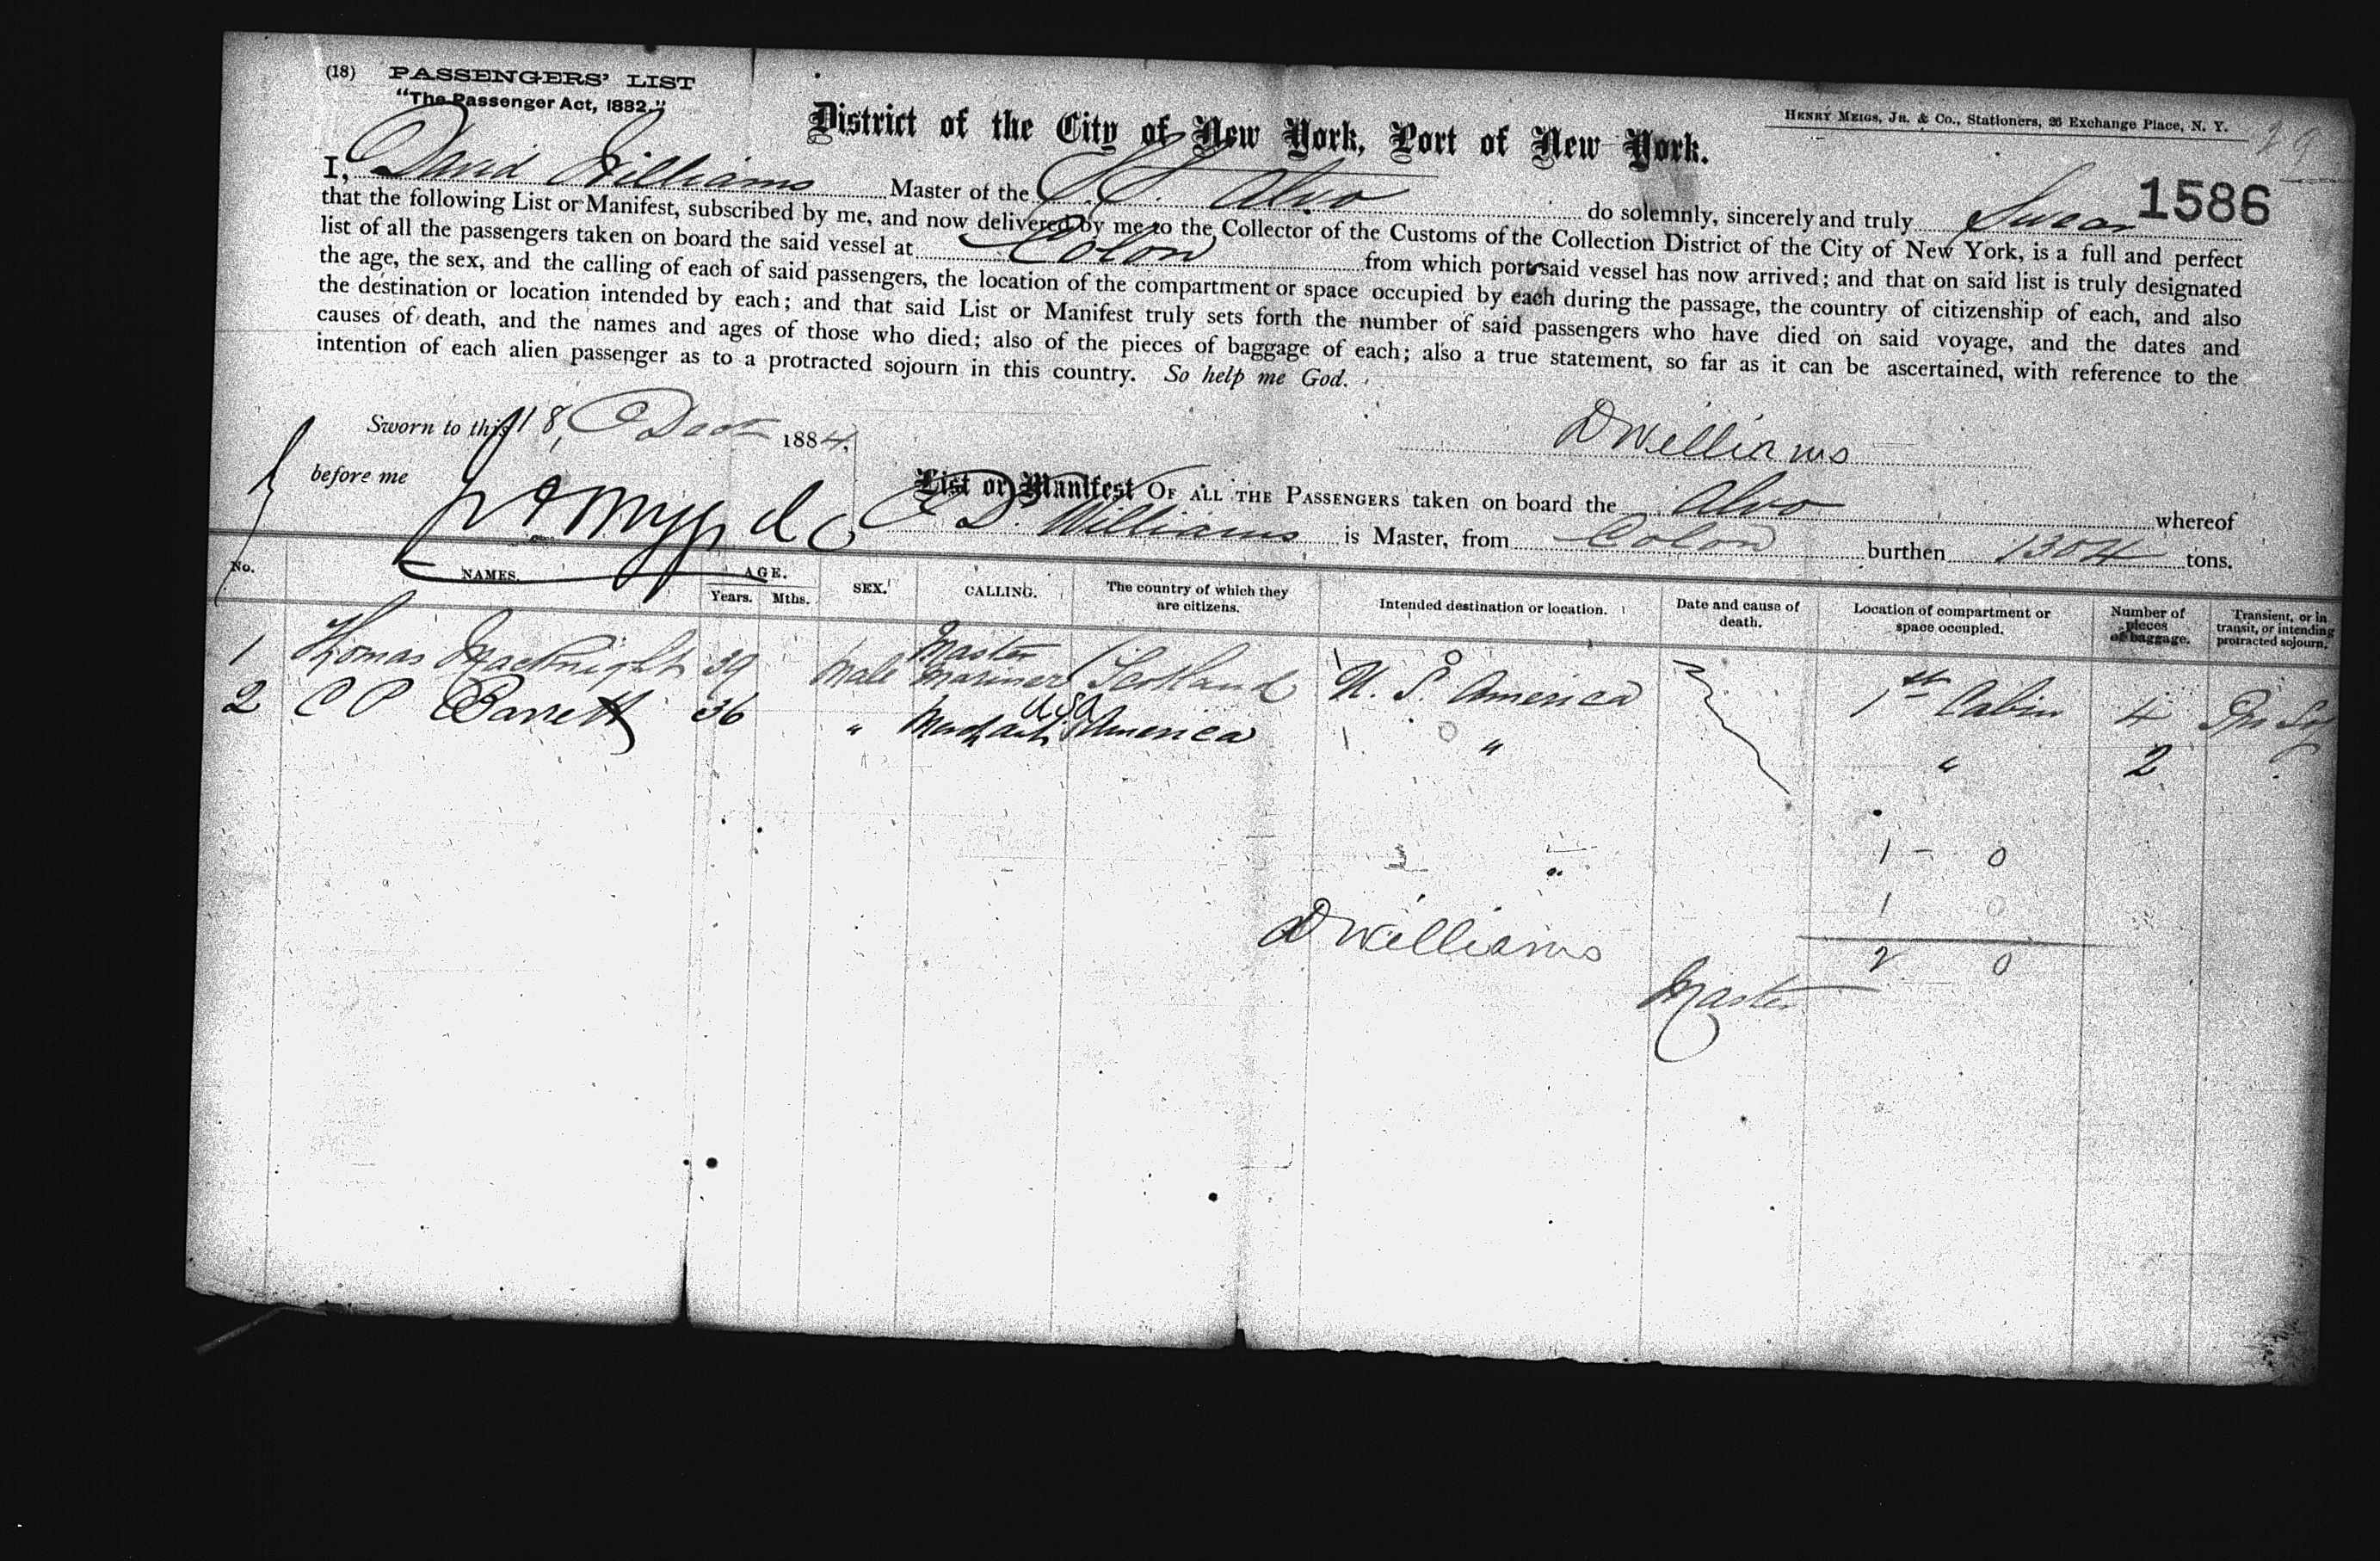 (18) PASSENGERS' LIST
"The Passenger Act, 1882."
HENRY MEIGS, JR. & CO., Stationers, 26 Exchange Place, N. Y.
29
District of the City of New York, Port of New York.
1586
I, David Williams Master of the S.S. Alvo do solemnly, sincerely and truly Swear
that the following List or Manifest, subscribed by me, and now delivered by me to the Collector of the Customs of the Collection District of the City of New York, is a full and perfect
list of all the passengers taken on board the said vessel at Colon from which port said vessel has now arrived; and that on said list is truly designated
the age, the sex, and the calling of each of said passengers, the location of the compartment or space occupied by each during the passage, the country of citizenship of each, and also
the destination or location intended by each; and that said List or Manifest truly sets forth the number of said passengers who have died on said voyage, and the dates and
causes of death, and the names and ages of those who died; also of the pieces of baggage of each; also a true statement, so far as it can be ascertained, with reference to the
intention of each alien passenger as to a protracted sojourn in this country. So help me God.
Sworn to this 18, Dec 1884.
DWilliams
before me
List or Manifest OF ALL THE PASSENGERS taken on board the Alvo whereof
D. Williams is Master, from Colon burthen 1304 tons.
No. NAMES. AGE. Years. Mths. SEX. CALLING. The country of which they are citizens. Intended destination or location. Date and cause of death. Location of compartment or space occupied. Number of pieces of baggage. Transient, or in transit, or intending protracted sojourn.
1 Thomas MacKnight 39 Male Master Mariner Scotland U. S. America 1st Cabin 4
2 C P Barrett 36 " Merchant USA America " " 2
1 - 0
1 0
2 0
DWilliams
Master